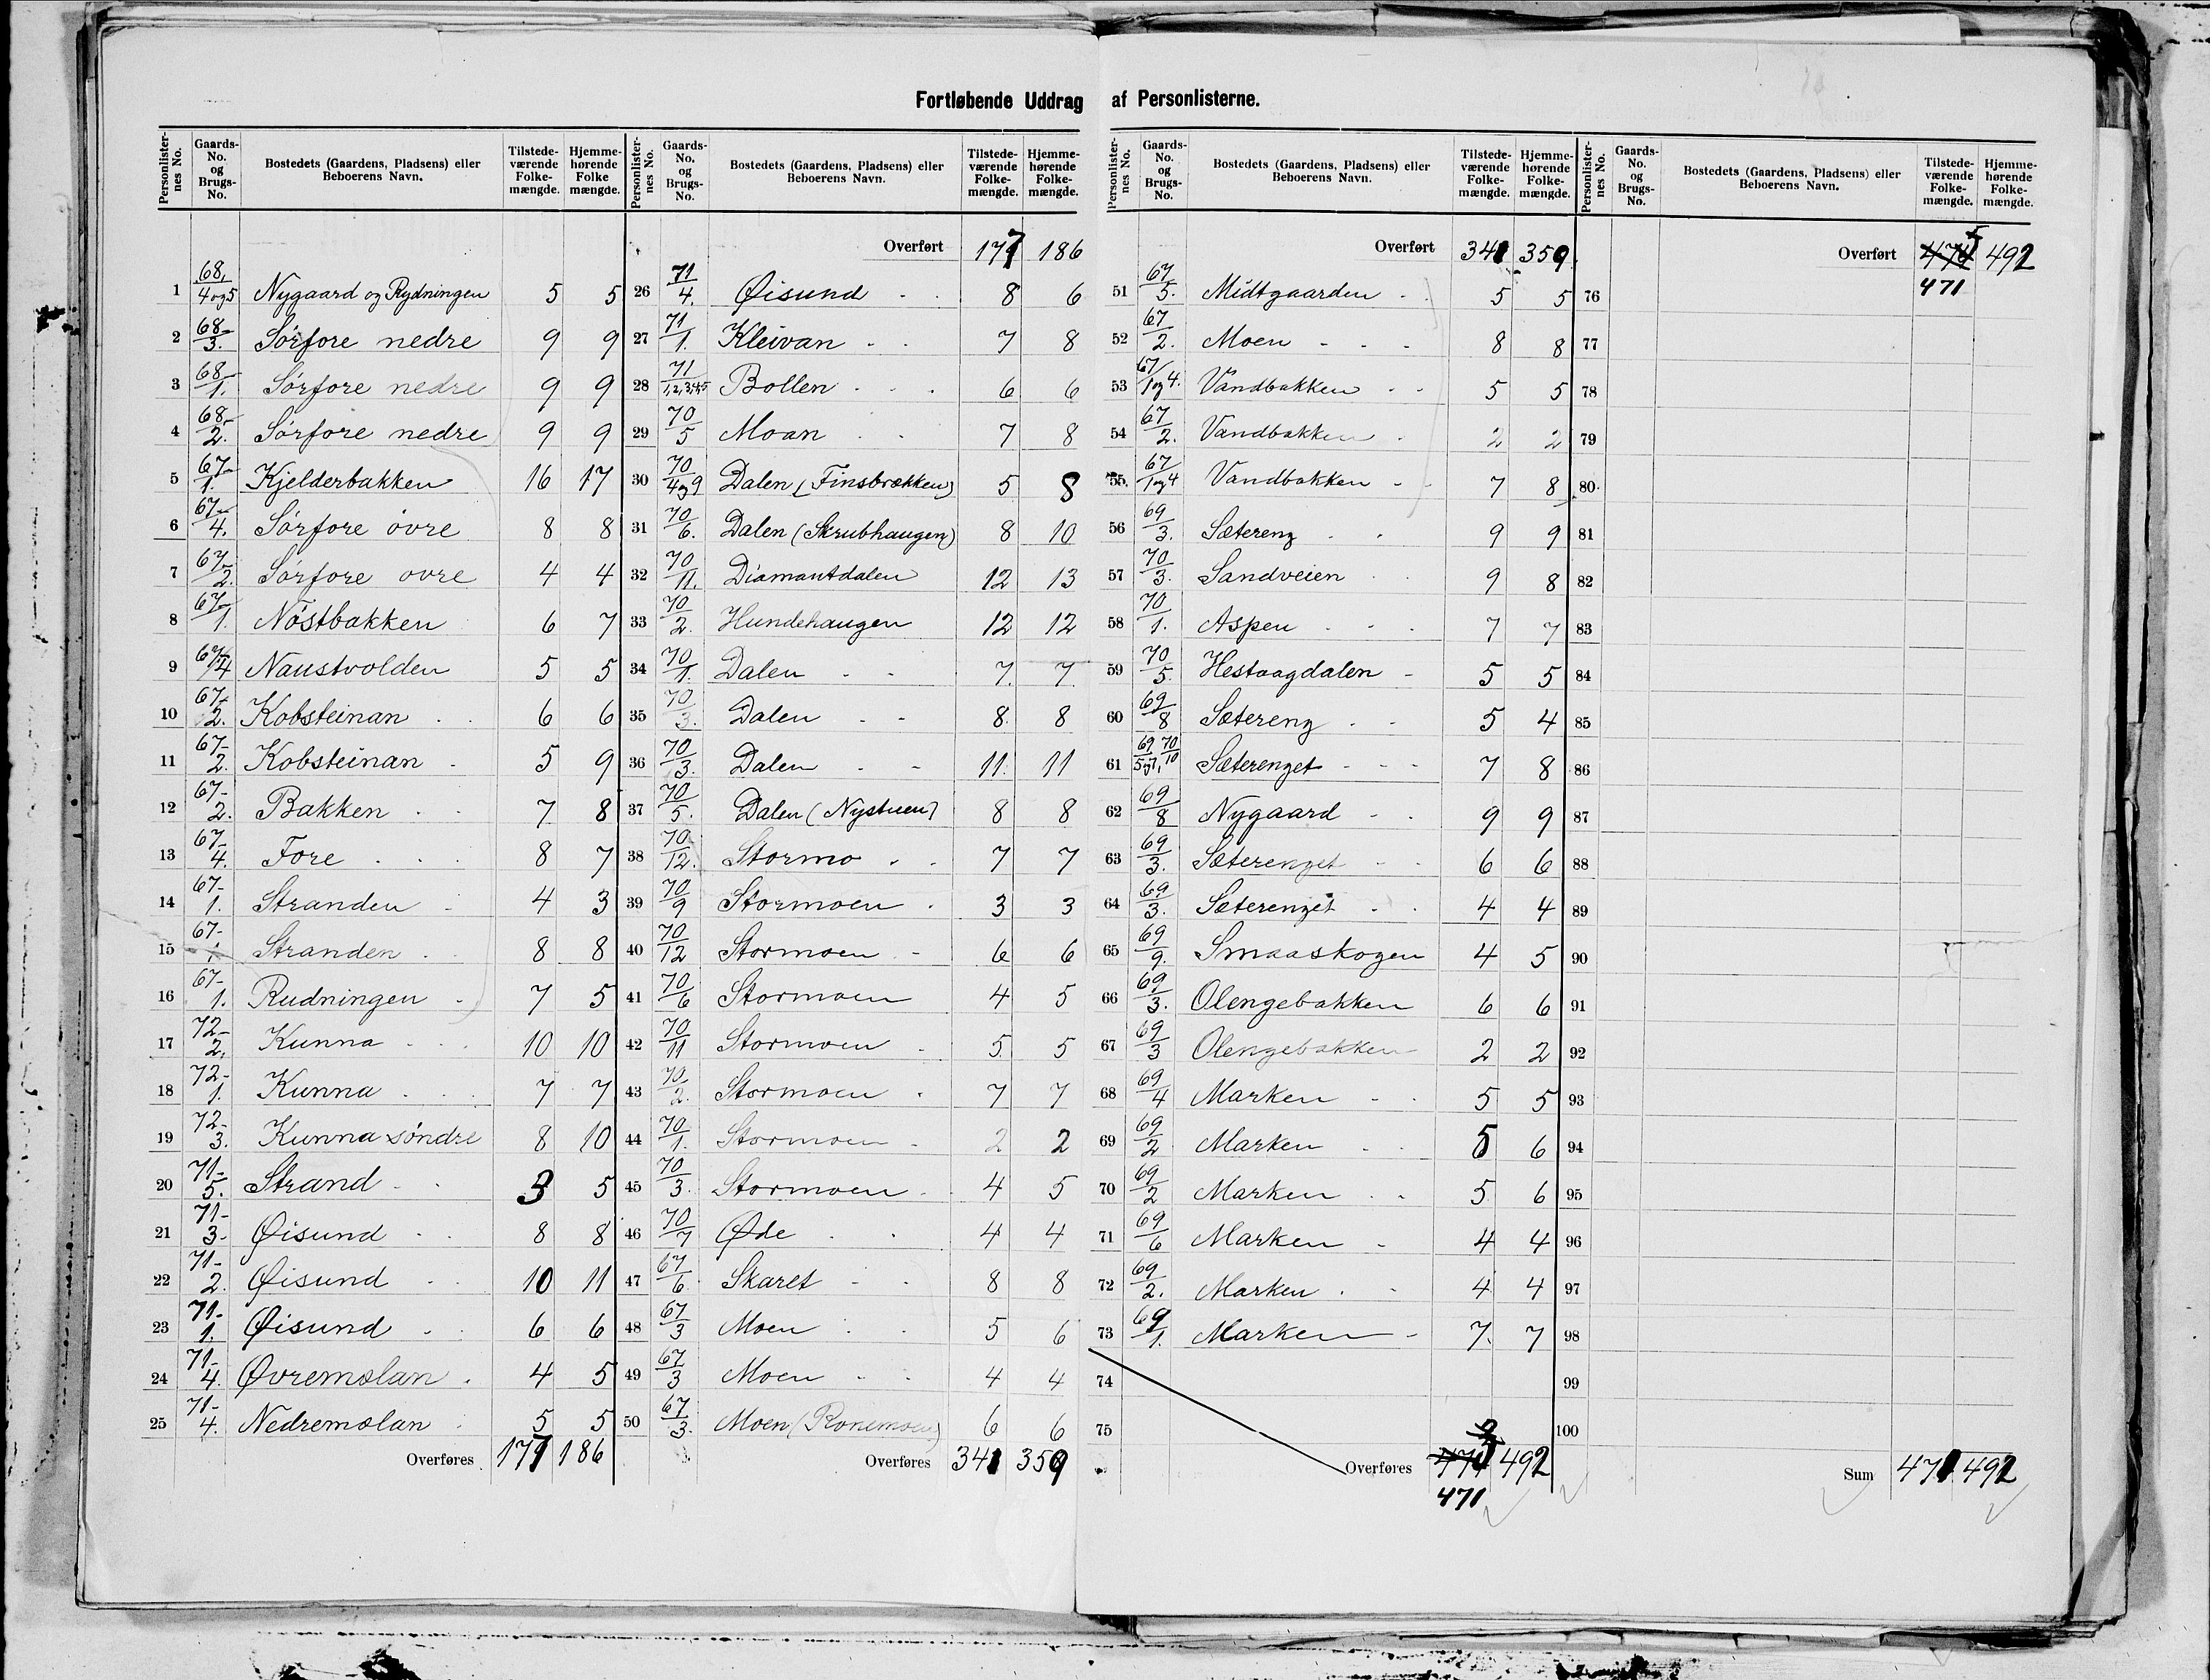 Fortløbende Uddrag af Personlisterne.
Personlisternes No. Gaards-No. og Brugs-No. Bostedets (Gaardens, Pladsens) eller Beboerens Navn. Tilstedeværende Folkemængde. Hjemmehørende Folkemængde.
1 68, 4 og 5 Nygaard og Rydningen 5 5
2 68- 3. Sørfore nedre 9 9
3 68- 1. Sørfore nedre 9 9
4 68- 2. Sørfore nedre 9 9
5 67- 1. Kjelderbakken 16 17
6 67- 4. Sørfore øvre 8 8
7 67- 2. Sørfore øvre 4 4
8 67- 1. Nøstbakken 6 7
9 67- 4 Naustvolden 5 5
10 67- 2. Kobsteinan 6 6
11 67- 2. Kobsteinan 5 9
12 67- 2. Bakken 7 8
13 67- 4. Fore 8 7
14 67- 1. Stranden 4 3
15 67- 1 Stranden 8 8
16 67- 1. Rudningen 7 5
17 72- 2. Kunna 10 10
18 72- 1. Kunna 7 7
19 72- 3. Kunna søndre 8 10
20 71- 5. Strand 3 5
21 71- 3. Øisund 8 8
22 71- 2. Øisund 10 11
23 71- 1. Øisund 6 6
24 71- 4. Øvremølan 4 5
25 71- 4. Nedremølan 5 5
Overføres 177 186
Personlisternes No. Gaards-No. og Brugs-No. Bostedets (Gaardens, Pladsens) eller Beboerens Navn. Tilstedeværende Folkemængde. Hjemmehørende Folkemængde.
Overført 177 186
26 71/4. Øisund 8 6
27 71/1. Kleivan 7 8
28 71/1,2,3,4,5 Bollen 6 6
29 70/5 Moan 7 8
30 70/4og9 Dalen (Finsbrækken) 5 8
31 70/6. Dalen (Skrubhaugen) 8 10
32 70/11. Diamantdalen 12 13
33 70/2. Hundehaugen 12 12
34 70/1. Dalen 7 7
35 70/3. Dalen 8 8
36 70/3. Dalen 11 11
37 70/5. Dalen (Nystuen) 8 8
38 70/12. Stormo 7 7
39 70/9 Stormoen 3 3
40 70/12 Stormoen 6 6
41 70/6 Stormoen 4 5
42 70/11 Stormoen 5 5
43 70/2. Stormoen 7 7
44 70/1. Stormoen 2 2
45 70/3. Stormoen 4 5
46 70/7 Øde 4 4
47 67/6 Skaret 8 8
48 67/3 Moen 5 6
49 67/3 Moen 4 4
50 67/3. Moen (Ronemoen) 6 6
Overføres 341 359
Personlisternes No. Gaards-No. og Brugs-No. Bostedets (Gaardens, Pladsens) eller Beboerens Navn. Tilstedeværende Folkemængde. Hjemmehørende Folkemængde.
Overført 341 359
51 67/5. Midtgaarden 5 5
52 67/2. Moen 8 8
53 67/1og4. Vandbakken 5 5
54 67/2. Vandbakken 2 2
55. 67/1og4 Vandbakken 7 8
56 69/3. Sæterenz 9 9
57 70/3. Sandveien 9 8
58 70/1. Aspen 7 7
59 70/5. Hestaagdalen 5 5
60 69/8 Sætereng 5 4
61 69/5og7, 70/10 Sæterenget 7 8
62 69/8 Nygaard 9 9
63 69/3. Sæterenget 6 6
64 69/3. Sæterenget 4 4
65 69/9. Smaaskogen 4 5
66 69/3. Olengebakken 6 6
67 69/3 Olengebakken 2 2
68 69/4 Marken 5 5
69 69/2 Marken 5 6
70 69/2 Marken 5 6
71 69/6 Marken 4 4
72 69/2. Marken 4 4
73 69/1. Marken 7 7
74
75
Overføres 492
471
Personlisternes No. Gaards-No. og Brugs-No. Bostedets (Gaardens, Pladsens) eller Beboerens Navn. Tilstedeværende Folkemængde. Hjemmehørende Folkemængde.
Overført 492
471
76
77
78
79
80.
81
82
83
84
85
86
87
88
89
90
91
92
93
94
95
96
97
98
99
100
Sum 471 492